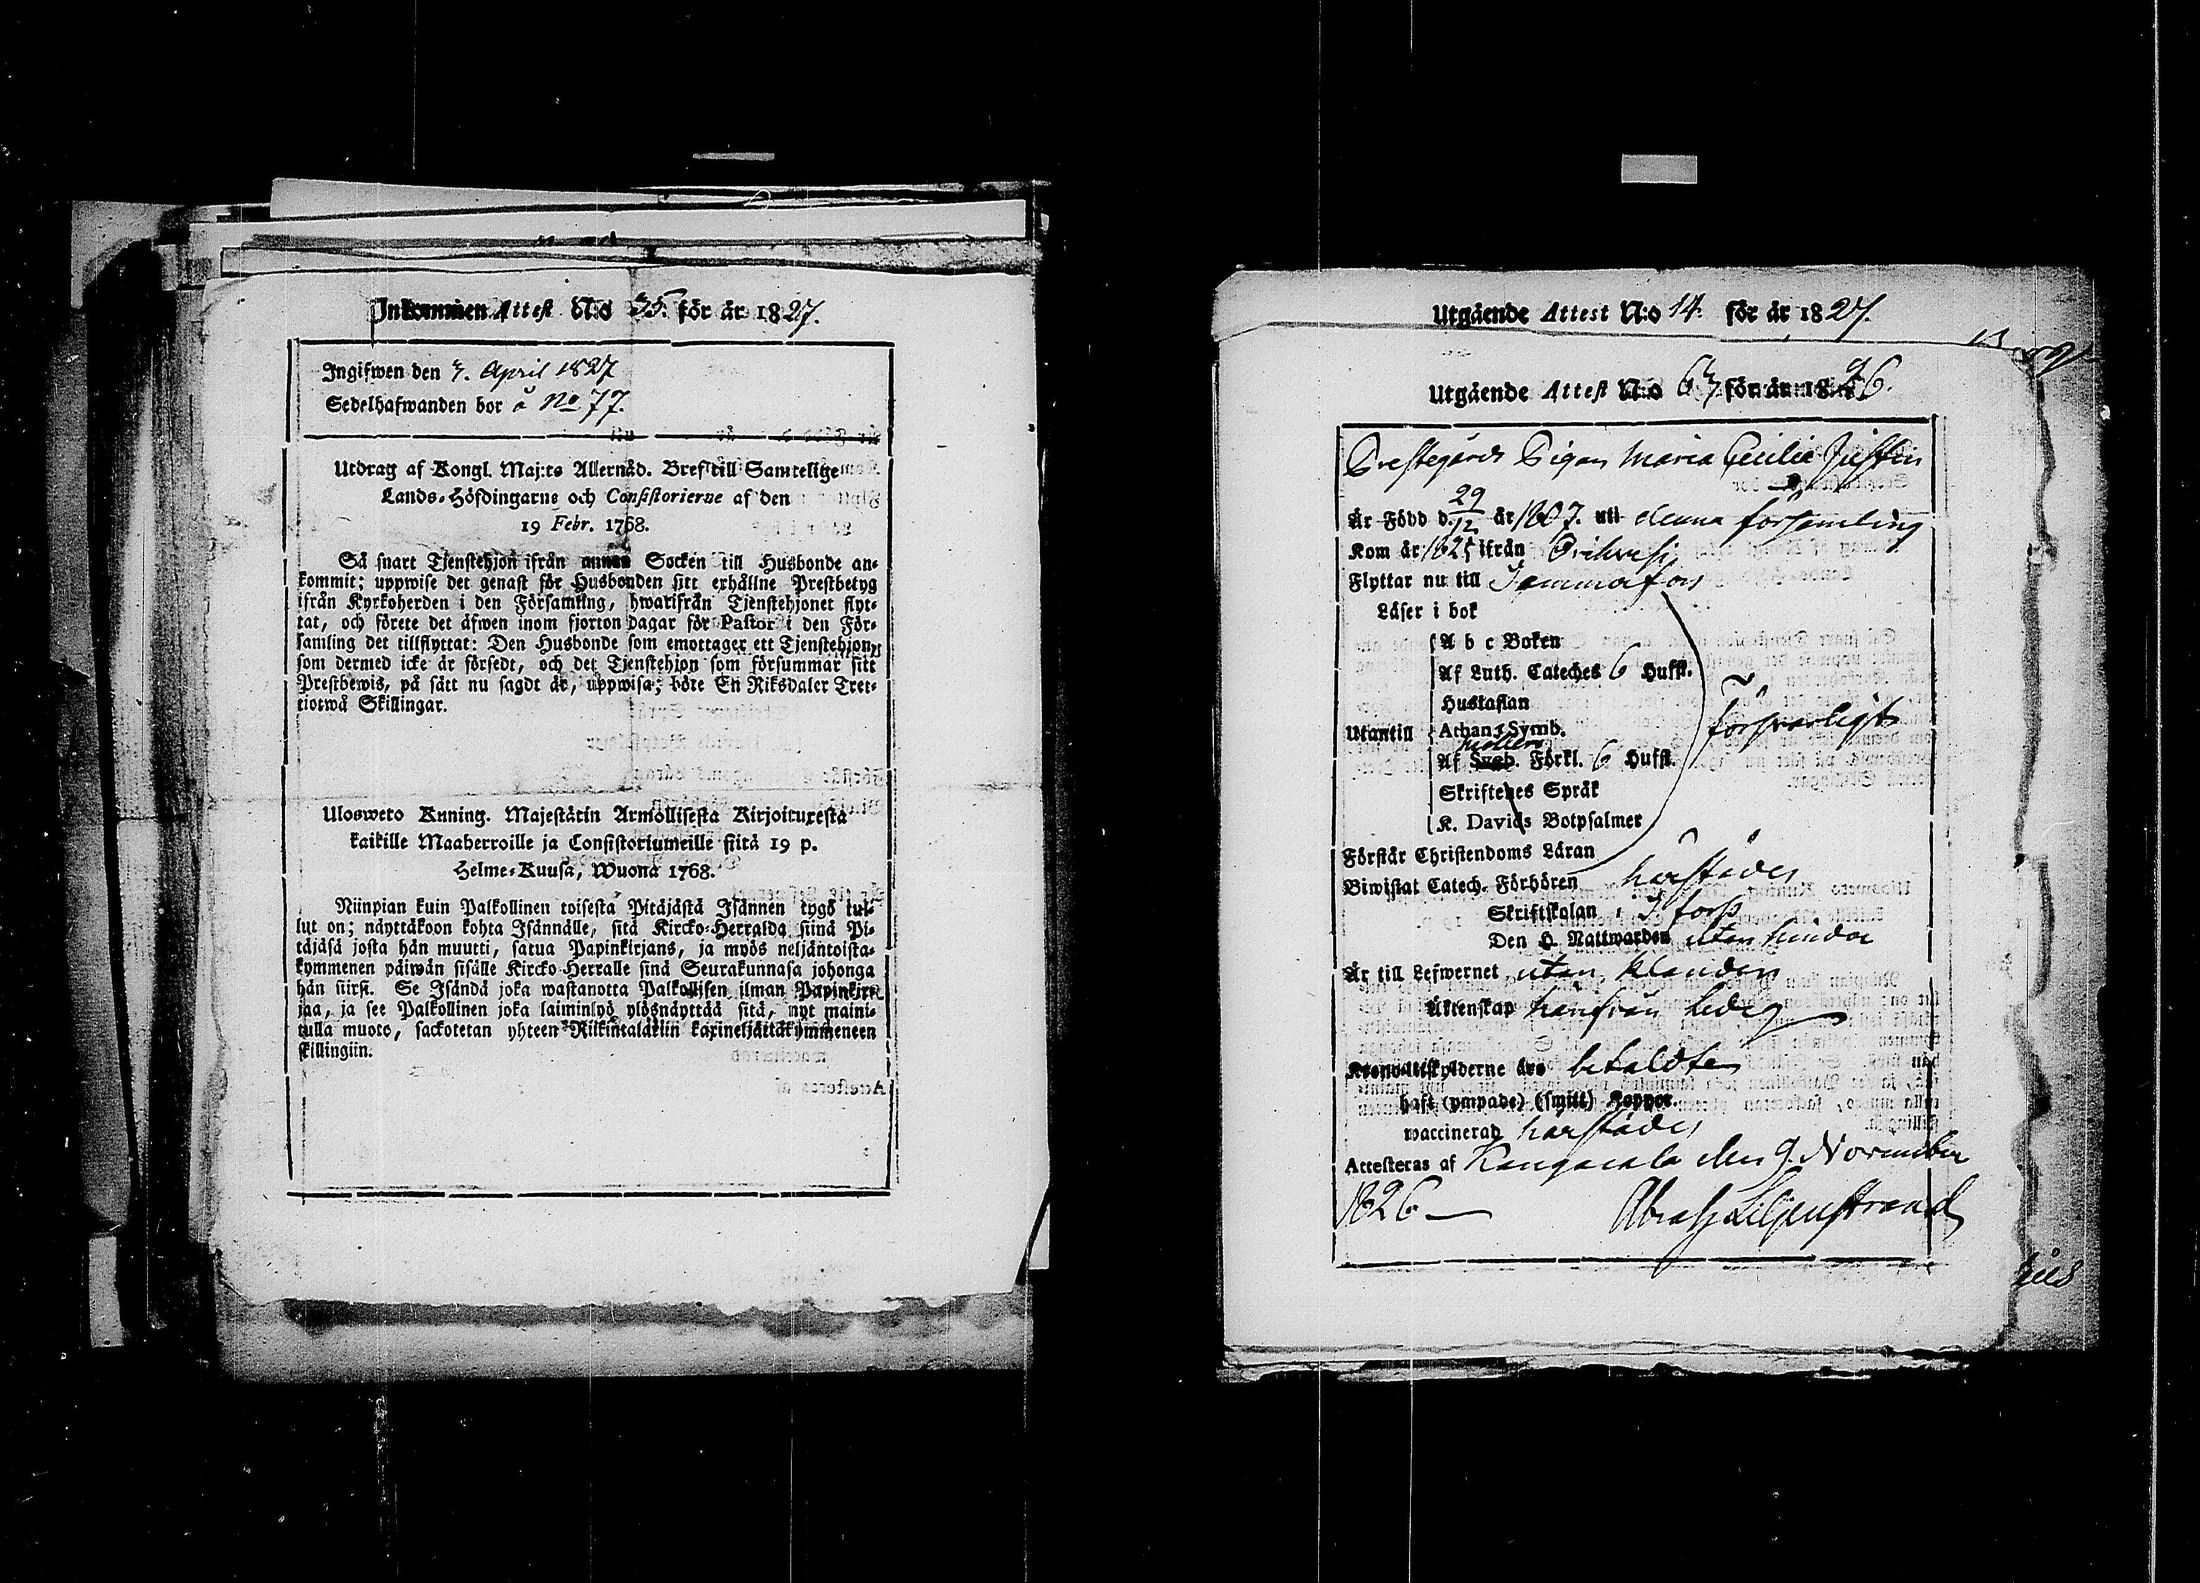 Inkommen Attest N:o 35. för år 1827.
Ingifwen den 3. April 1827
Sedelhafwanden bor å No 77.
Utdrag af Kongl. Maj:ts Allernåd. Bref till Samtelige
Lands-Höfdingarne och Consistorierne af den
19 Febr. 1768.
Så snart Tjenstehjon ifrån annan Socken till Husbonde an-
kommit; uppwise det genast för Husbonden sitt erhållne Prestbetyg
ifrån Kyrkoherden i den Församling, hwarifrån Tjenstehjonet flyt-
tat, och förete det äfwen inom fjorton dagar för Pastor i den För-
samling det tillflyttat: Den Husbonde som emottager ett Tjenstehjon,
som dermed icke är försedt, och det Tjenstehjon som försummar sitt
Prestbewis, på sätt nu sagdt är, uppwisa, böte En Riksdaler Tret-
tiotwå Skillingar.
Ulosweto Kuning. Majestätin Armollisesta Kirjoituxesta
kaikille Maaherroille ja Consistoriumeille siitä 19 p.
Helme-Kuusa, Wuonna 1768.
Niinpian kuin Palkollinen toisesta Pitäjästä Isännen tygö tul-
lut on; näyttäkoon kohta Isännälle, sitä Kircko-Herralda siinä Pi-
täjäsä josta hän muutti, saatua Papinkirjans, ja myös neljäntoista-
kymmenen päiwän sisälle Kircko-Herralle sinä Seurakunnasa johonga
hän siirst. Se Isändä joka wastanotta Palkollisen ilman Papinkir-
jaa, ja see Palkollinen joka laiminlyö ylösnäyttää sitä, nyt maini-
tulla muoto, sackotetan yhteen Riikintalariin kaxineljättäkymmeneen
skillingiin.
Utgående Attest N:o 14. för år 1827.
Utgående Attest N:o 63 för år 1826.
Prestegårds Pigan Maria Cecilia
Är Född d. 29/12 år 1807. uti denna församling
Kom år 1825 ifrån Orihvesi
Flyttar nu till Tammerfors
Läser i bok
A b c Boken
Af Luth. Cateches 6 Hufst.
Hustaflan
Utantill Athan. Symb. Försvarligt
Möllers
Af Sveb. Förkl. 6 Hufst.
Skriftenes Språk
K. Davids Botpsalmer
Förstår Christendoms Läran
Biwistat Catech. Förhören härstädes
Skriftskolan i
Den H. Nattwarden utan hinder
Är till Lefwernet utan klander
Äktenskap hemifrån ledig
Kronoutskylderne äro betaldte
haft (ympade) (smitt) Koppor.
waccinerad härstädes
Attesteras af Kangasala den 9. November
1826 Abrah Liljenstrand